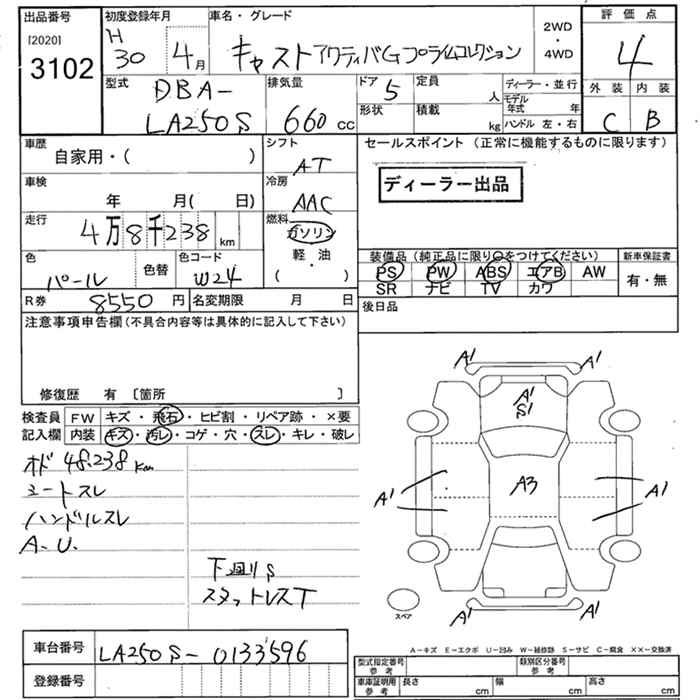 出品番号 初度登録年月 車名・グレード 2WD・4WD 評価点
[2020] 3102 H30 4月 キャスト アクティバGプライムコレクション 4
型式 DBA- LA250S 排気量 660 cc ドア 5 定員 人 ディーラー・並行 外装 内装
形状 積載 kg モデル年式 年 ハンドル 左・右 C B
車歴 自家用・( ) シフト AT セールスポイント(正常に機能するものに限ります)
車検 年 月( 日) 冷房 AAC ディーラー出品
走行 4万8千238 km 燃料 ガソリン 軽油 ( ・ )
色 パール 色替 色コード W24 装備品(純正品に限り○をつけてください) 新車保証書
PS PW ABS エアB AW 有・無
SR ナビ TV カワ
R券 8550円 名変期限 月 日 後日品
注意事項申告欄(不具合内容等は具体的に記入して下さい)
修復歴 有 〔箇所 〕
検査員 FW キズ・飛石・ヒビ割・リペア跡・×要
記入欄 内装 キズ・汚レ・コゲ・穴・スレ・キレ・破レ
オド 48.238 km
シートスレ
ハンドルスレ
A.U.
下廻りS
スタットレスT
A1 A1
A1
S1
A3
A1 A1
A1 A1
スペア
A-キズ E-エクボ U-凹み W-補修跡 S-サビ C-腐食 XX-交換済
車台番号 LA250S-0133596
登録番号
型式指定番号 参考 類別区分番号 参考
車庫証明用 参考 長さ cm 幅 cm 高さ cm